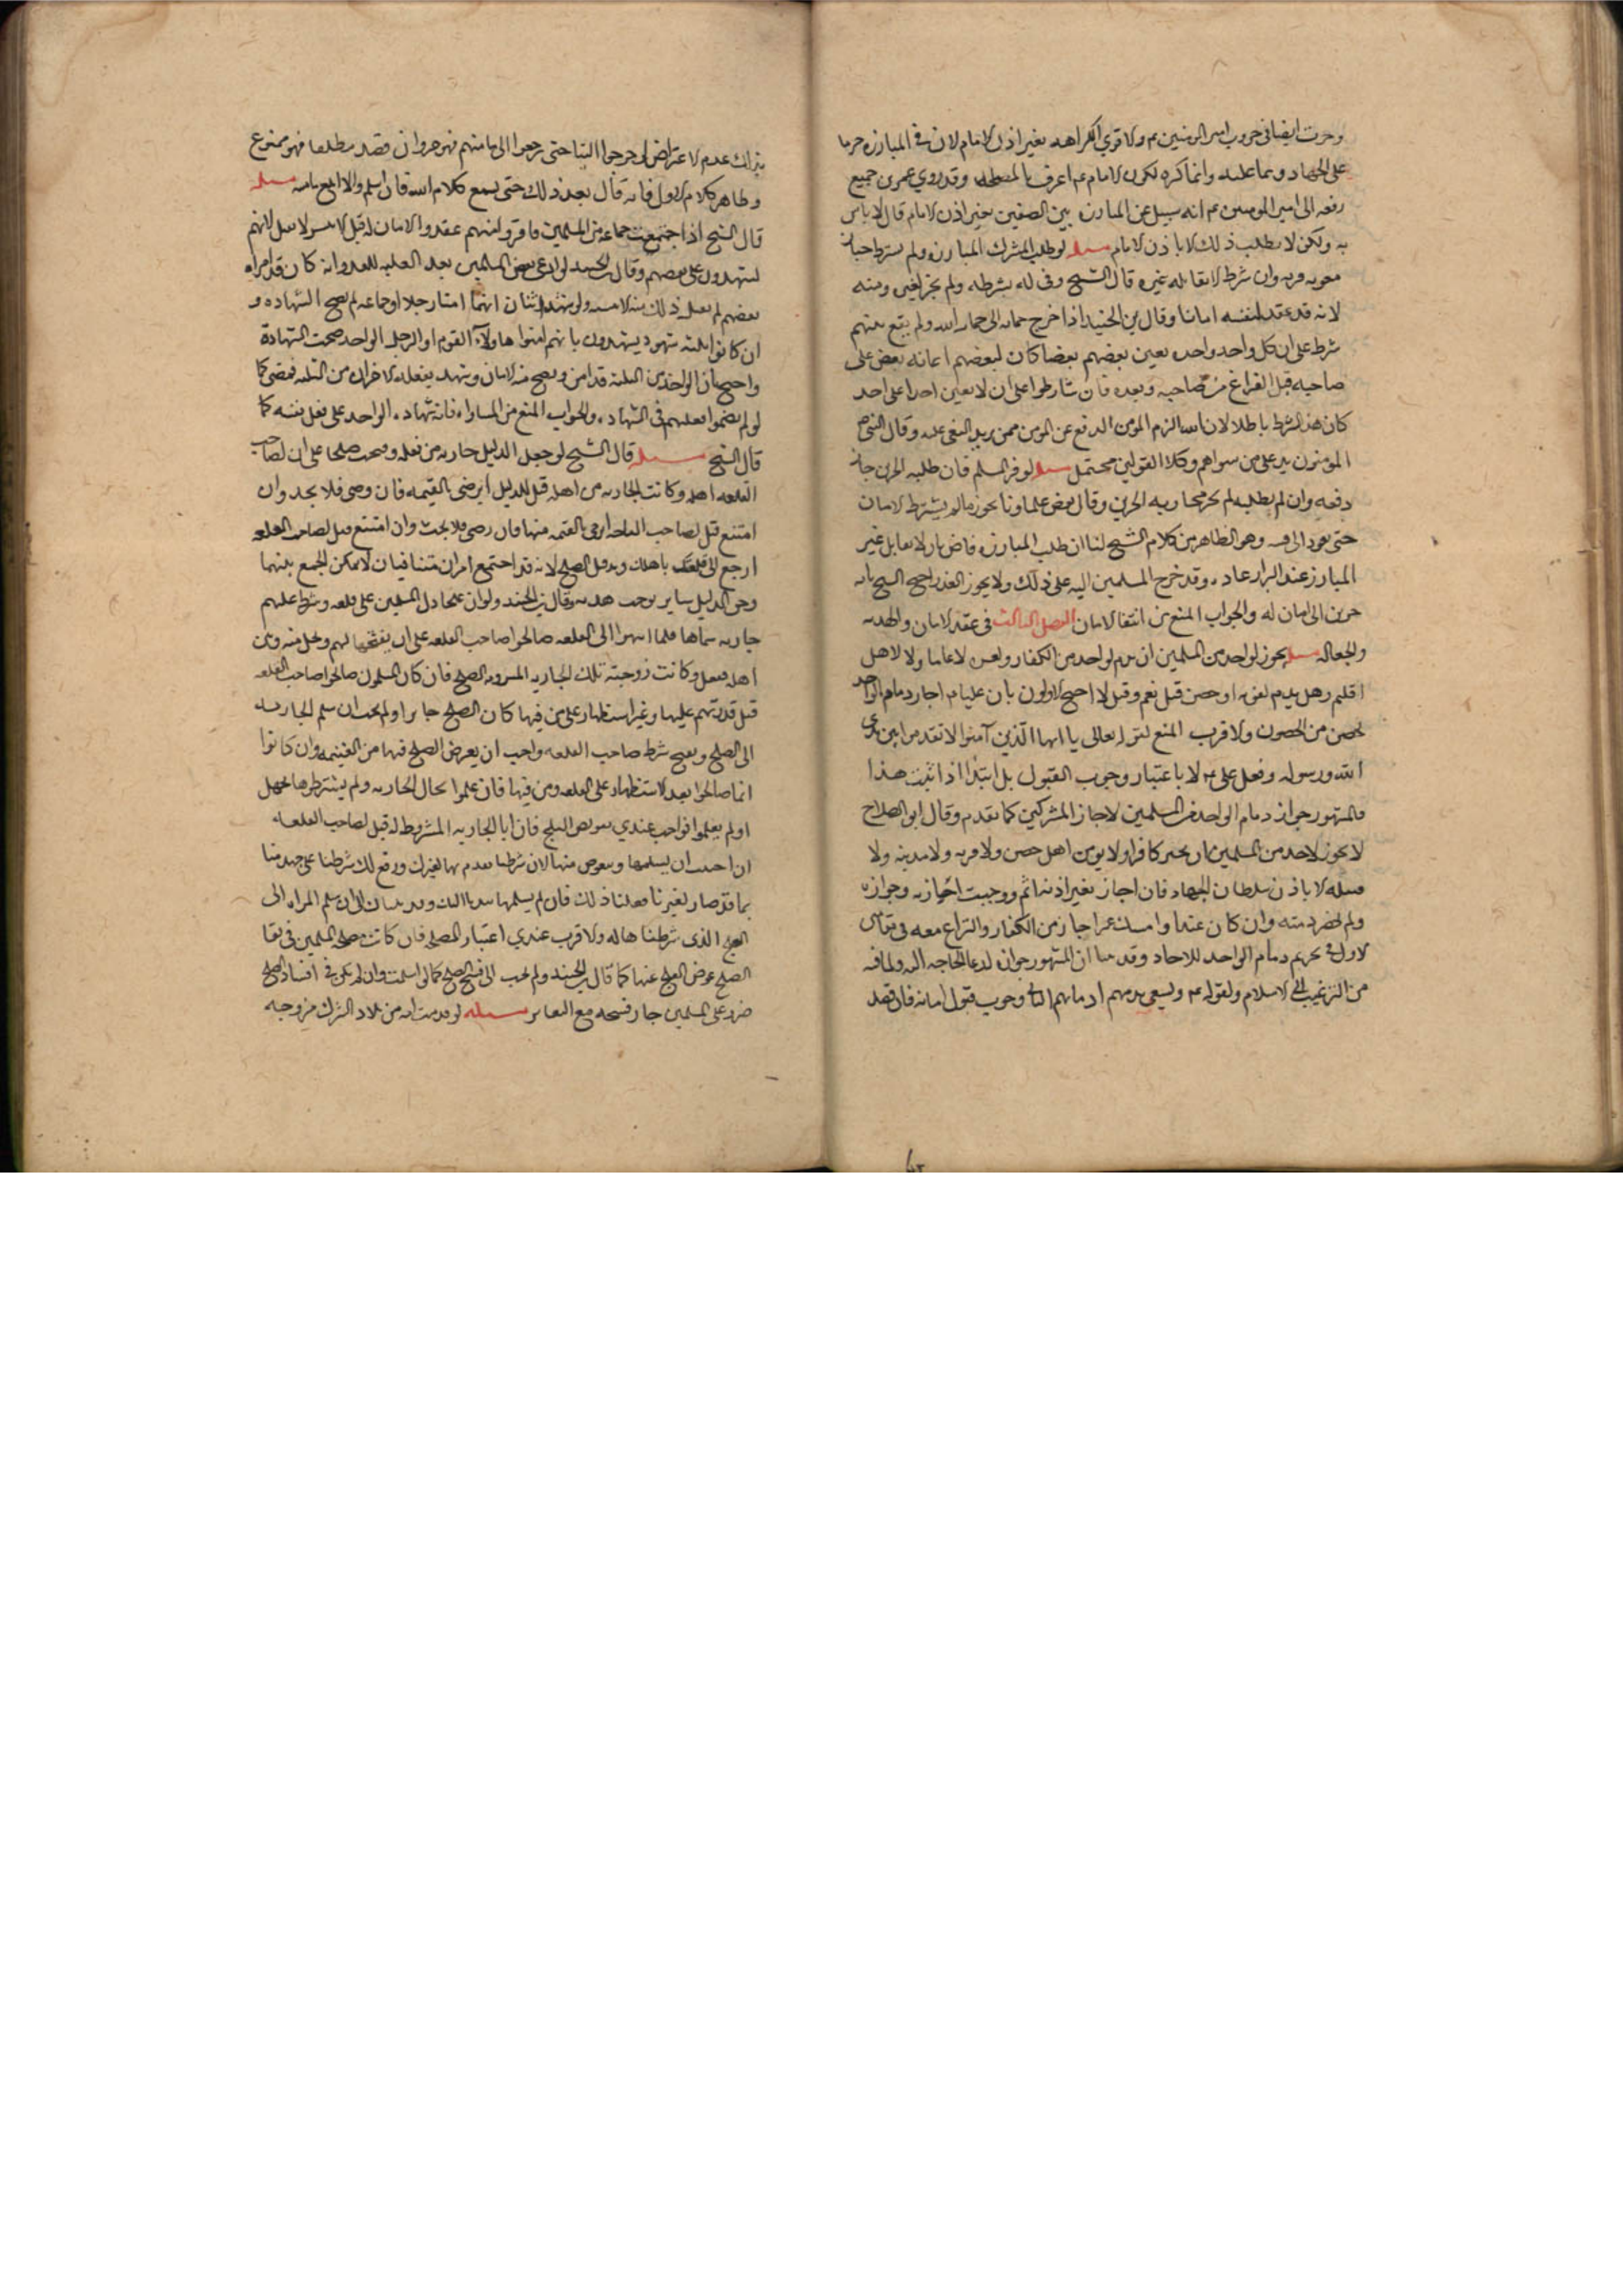 وجرت ايضا في حروب امير المومنين عم ولا قوي الكراهه بغير اذن الامام لان في المبارزه حرما
على الجهاد وبما عليه وانما كره لكون الامام عم اعرف بالمصلحه وقد روي عمر بن جميع
رفعه الى امير المومنين عم انه سيل عن المبارزه بين الصفين بغير اذن الامام قال لا باس
به ولكن لا يطلب ذلك الا باذن الامام مسله لو طلب المشرك المبارزه ولم يشترط جاز
معونه قرنه وان شرط الا يقاتله غيره قال الشيخ وفى له بشرطه ولم يجز لغيره
لانه قد عقد لنفسه امانا وقال بن الجنيد اذا خرج
شرط على ان كل واحد واحد يعين بعضهم بعضا كان لبعضهم اعانه بعض على
صاحبه قبل الفراغ من صاحبه وبعده فان تشارطوا على ان لا يعين احدا على احد
كان هذا الشرط باطلا لان الله الزم المومن الدفع عن المومن ممن يريد البغي عليه وقال النبي ص
المومنون يد على من سواهم وكلا القولين محتمل مسله لو فر المسلم فان طلبه الحربي جاز
دفعه وان لم يطلبه لم يجز محاربه الحربي وقال بعض علماونا يجوز ما لم يشترط الامان
حتى يعود الى فيه وهو الظاهر من كلام الشيخ لنا ان طلب المبارزه قاض بان لا يقابل غير
المبارز عند البراز عاده وقد خرج المسلمين اليه على ذلك ولا يجوز الغدر احتج الشيخ بانه
حربي لا امان له والجواب المنع من انتفا الامان الفصل الثالث في عقد الامان والهدنه
والجعاله مسله يجوز لواحد من المسلمين ان يذم لواحد من الكفار ولعشره لا عاما ولا لاهل
اقليم وهل يذم لقريه او حصن قيل نعم وقيل لا احتج الاولون بان عليا عم اجاز ذمام الواحد
لحصن من الحصون والاقرب المنع لقوله تعالى يا ايها الذين آمنوا لا تقدموا بين يدي
الله ورسوله وفعل علي عم لا باعتبار وجوب القبول بل ابتدا اذا ثبت هذا
فالمشهور جواز ذمام الواحد من المسلمين لاحاد المشركين كما تقدم وقال ابو الصلاح
لا يجوز لاحد من المسلمين ان يجير كافرا ولا يومن اهل حصن ولا قريه ولا مدينه ولا
قبيله الا باذن سلطان الجهاد فان اجاز بغير اذنه اثم ووجبت اجازته وجواره
ولم تخفر ذمته وان كان عبدا وامسك عمن اجاز من الكفار والنزاع معه في مقامين
الاول في تحريم ذمام الواحد للاحاد وقد بينا ان المشهور جوازه لدعا الحاجه اليه ولما فيه
من الترغيب في الاسلام ولقوله عم ويسعى بذمتهم ادناهم الثاني وجوب قبول امانه فان قصد
بذلك عدم الاعتراض لو خرجوا الينا حتى يرجعوا الى مامنهم فهو هو وان قصد مطلقا فهو ممنوع
وظاهر كلام الاول فانه قال بعد ذلك حتى يسمع كلام الله فان اسلم والا ابلغ مامنه مسله
قال الشيخ اذا اجتمعت جماعه من المسلمين فاقروا انهم عقدوا الامان له قبل الاسر لا يقبل لانهم
يشهدون على بعضهم وقال بن الجنيد لو ادعى بعض المسلمين بعد الغلبه للعدو انه كان قد امن او
بعضهم لم يقبل ذلك منه الا ببينه ولو شهد اثنان انهما امنا رجلا او جماعه لم تصح الشهاده و
ان كانوا ثلثه شهود يشهدون بانهم امنوا هاولآء القوم او الرجل الواحد صحت الشهادة
واحتج بان الواحد من الثلثه قد امن ويصح منه الامان ويشهد بفعله الاخران من الثلثه فمضى كما
لو لم يضموا فعلهم في الشهاده والجواب المنع من المساواه فانه شهاده الواحد على فعل نفسه كما
قال الشيخ مسله قال الشيخ لو جعل الدليل جاريه من قلعه وفتحت صلحا على ان لصاحب
القلعه اهله وكانت الجاريه من اهله قيل للدليل اترضى بالقيمه فان رضي فلا بحث وان
امتنع قيل لصاحب القلعه اترضى بالقيمه منها فان رضي فلا بحث وان امتنع قيل لصاحب القلعه
ارجع الى قلعتك باهلك ويزول الصلح لانه قد اجتمع امران متنافيان لا يمكن الجمع بينهما
وحق الدليل سابق يوجب هدنته وقال بن الجنيد ولو ان علجا دل المسلمين على قلعه وشرط عليهم
جاريه سماها فلما انتهوا الى القلعه صالحوا صاحب القلعه على ان يفتحها لهم ويخلى منه وبين
اهله ففعل وكانت زوجته تلك الجاريه المشروطه الصلح فان كان المسلمون صالحوا صاحب القلعه
قبل قدرتهم عليها وغير استظهار على من فيها كان الصلح جائزا ولم يجب ان يسلم الجاريه
الى العلج ويصح شرط صاحب القلعه واجب ان يعوض العلج قيمتها من الغنيمه وان كانوا
انما صالحوا بعد الاستظهار على القلعه ومن فيها فان علموا بحال الجاريه ولم يشترطوها لجهل
او لم يعلموا فواجب عندي تعويض العلج فان ابا الا الجاريه المشروطه له قيل لصاحب القلعه
ان احببت ان تسلمها وتعوض منها لان شرطنا تقدم بها لغيرك ووقع لك شرطنا على جهل منا
بما قد صار لغيرنا فعلنا ذلك فان لم يسلمها
العلج الذي شرطنا هاله والاقرب عندي اعتبار المصلحه فان كانت مصلحه المسلمين في بقا
الصلح عوض العلج عنها كما قال بن الجنيد ولم يجب الى فسخ الصلح كما لو اسلمت وان لم يكن في افساد الصلح
ضرر على المسلمين جاز فسخه مع التعاسر مسله لو قدمت امراه من بلاد الشرك مزوجه